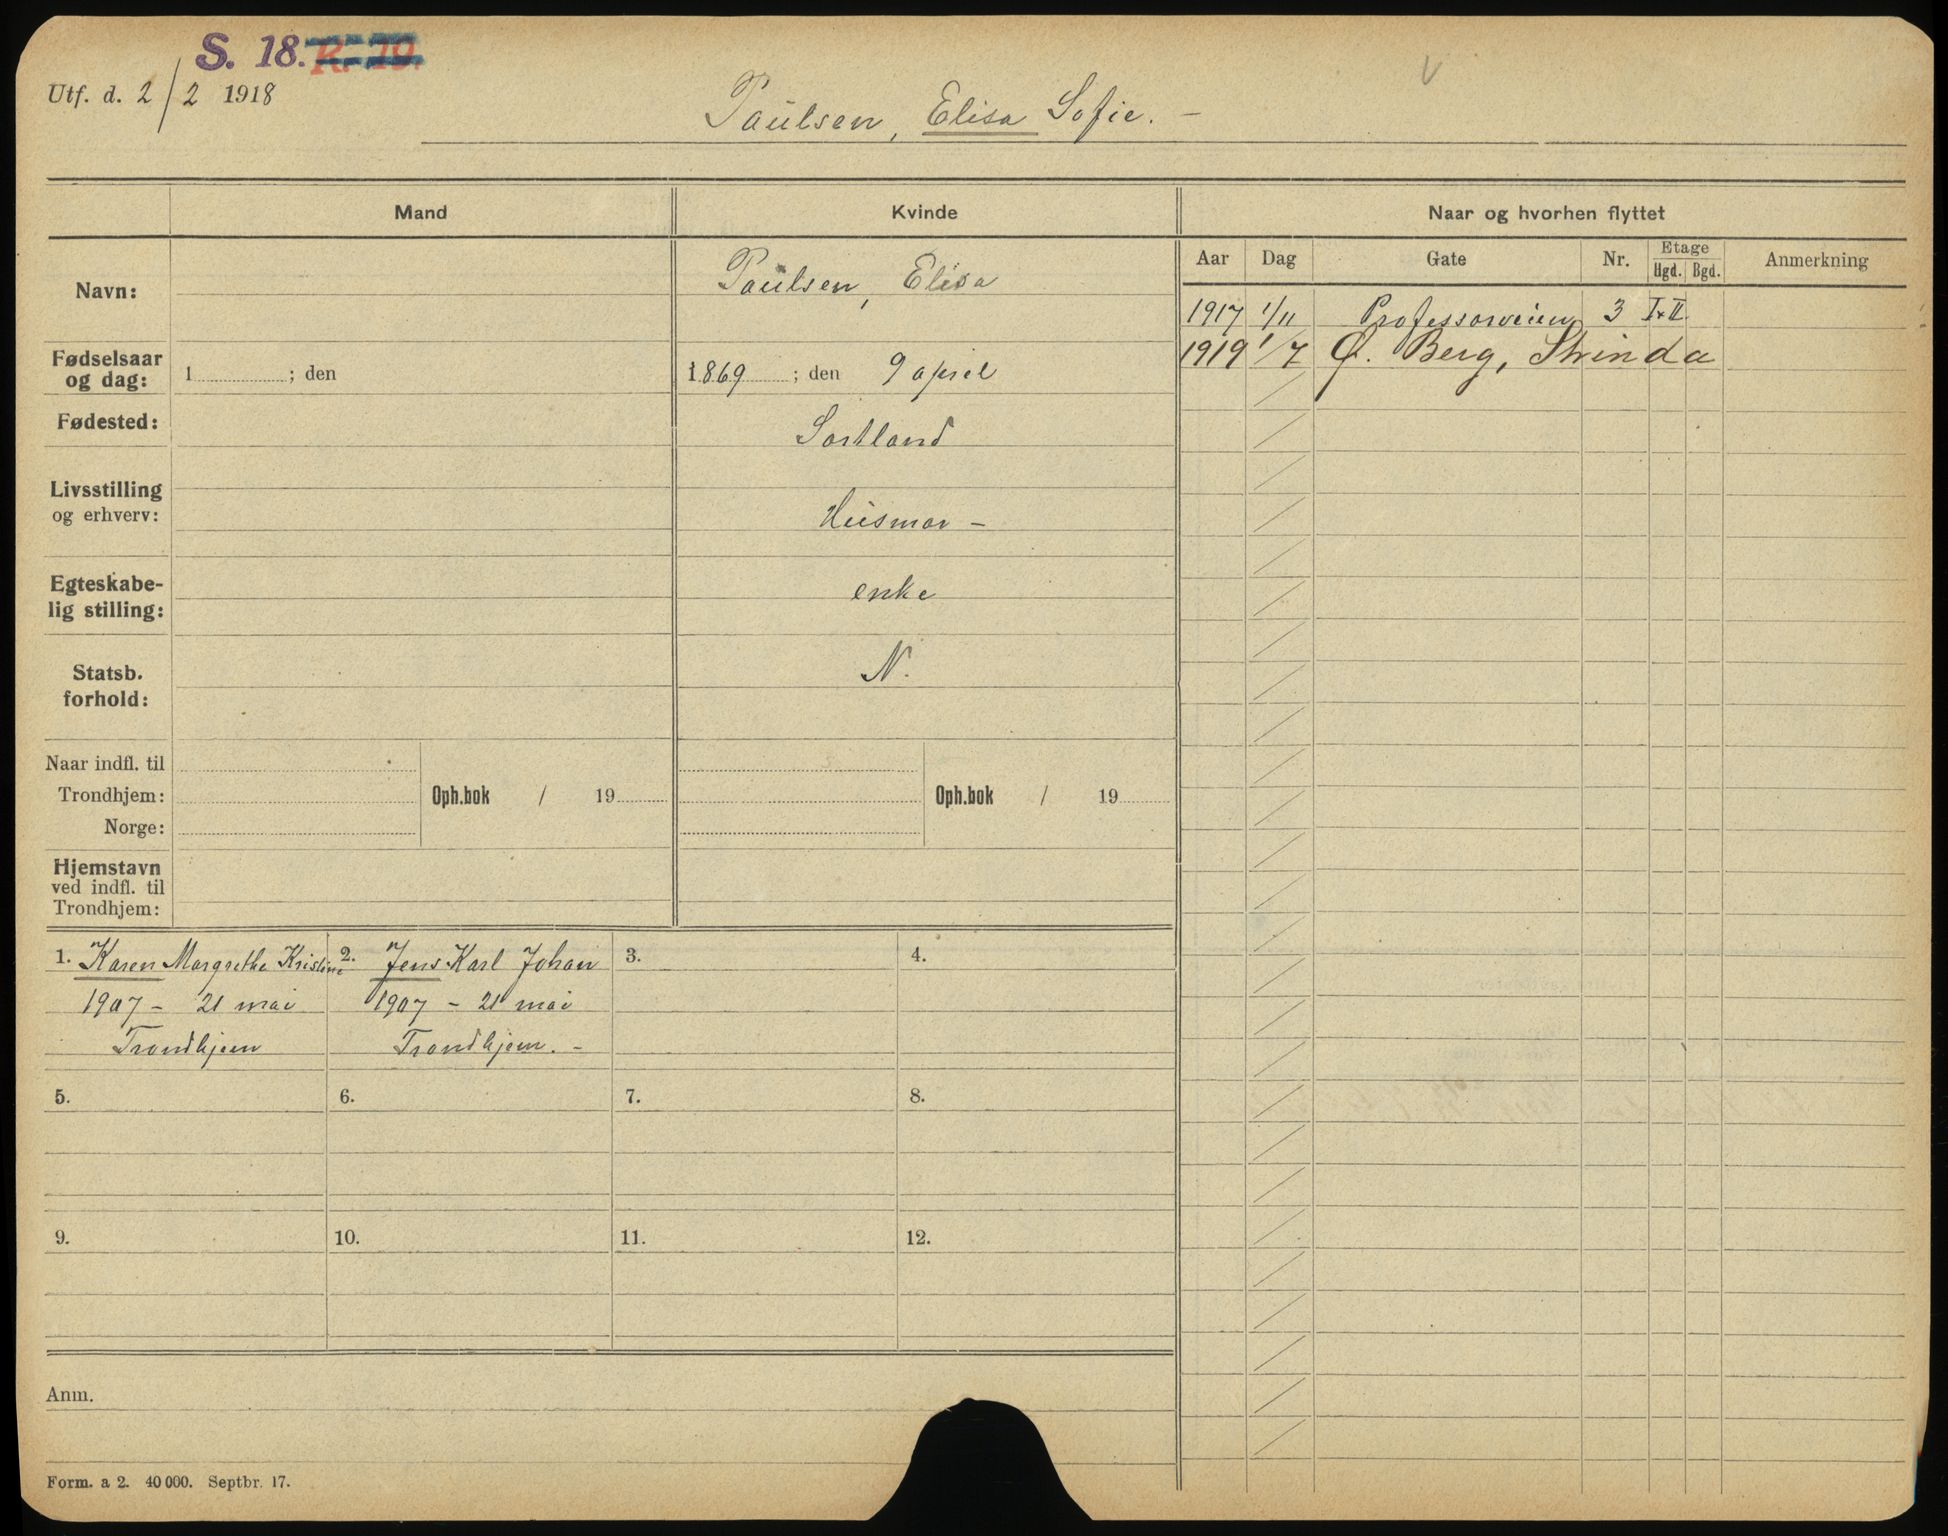 S. 18. R. 19.
Utf. d. 2/2 1918
Paulsen, Elisa Sofie. -
Mand Kvinde Naar og hvorhen flyttet
Aar Dag Gate Nr. Etage Hgd. Bgd. Anmerkning
Navn: Paulsen, Elisa
1917 1/11 Professorveien 3 I+II
1919 1/7 Ø. Berg, Strinda
Fødselsaar
og dag: 1 ; den 1869 ; den 9 april
Fødested: Sortland
Livsstilling
og erhverv: Husmor -
Egteskabe-
lig stilling: enke
Statsb.
forhold: N.
Naar indfl. til
Trondhjem: Oph.bok / 19 Oph.bok / 19
Norge:
Hjemstavn
ved indfl. til
Trondhjem:
1. Karen Margrethe Kristine
1907 - 21 mai
Trondhjem
2. Jens Karl Johan
1907 - 21 mai
Trondhjem. -
3.
4.
5.
6.
7.
8.
9.
10.
11.
12.
Anm.
Form. a 2. 40 000. Septbr. 17.